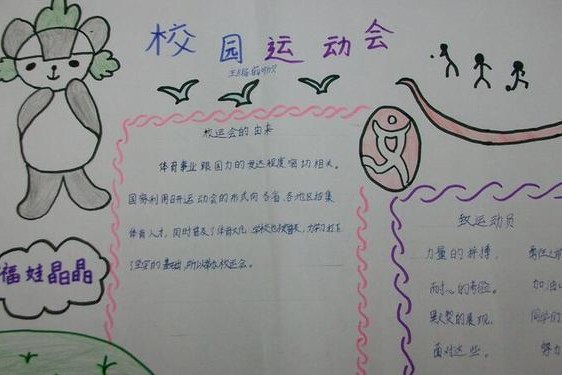 校园运动会
校运会的由来
体育事业跟国力的发达程度密切相关。
国家利用召开运动会的形式向各省、各地区招集
体育人才，同时普及了体育文化，学校也
了坚实的基础，所以举办校运会。
福娃晶晶
致运动员
力量的拼搏，
耐心的考验。
默契的展现，
面对这些。
加油
同学们
努力